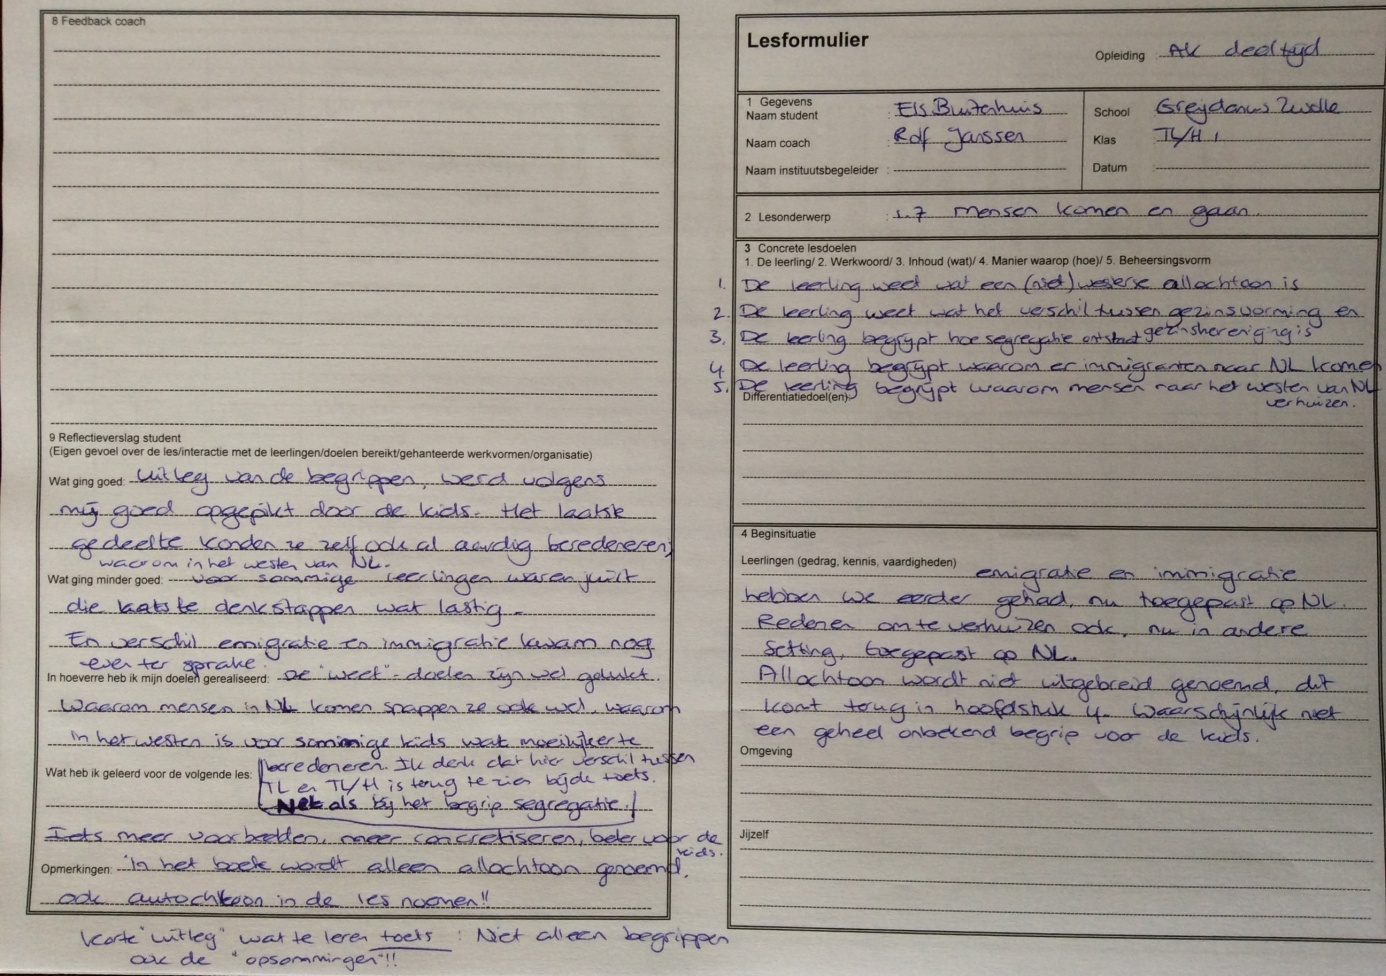 8 Feedback coach
9 Reflectieverslag student
(Eigen gevoel over de les/interactie met de leerlingen/doelen bereikt/gehanteerde werkvormen/organisatie)
Wat ging goed: Uitleg van de begrippen, werd volgens
mij goed opgepikt door de kids. Het laatste
gedeelte konden ze zelf ook al aardig beredeneren,
waarom in het westen van NL.
Wat ging minder goed: voor sommige leerlingen waren juist
die laatste denkstappen wat lastig.
En verschil emigratie en immigratie kwam nog
even ter sprake.
In hoeverre heb ik mijn doelen gerealiseerd: De "weet"-doelen zijn wel gelukt.
Waarom mensen in NL komen snappen ze ook wel, waarom
in het westen is voor sommige kids wat moeilijker te
beredeneren. Ik denk dat hier verschil tussen
TL en TL/H is terug te zien bij de toets.
Net als bij het begrip segregatie.
Wat heb ik geleerd voor de volgende les:
Iets meer voorbeelden, meer concretiseren, beter voor de
kids.
Opmerkingen: In het boek wordt alleen allochtoon genoemd,
ook autochtoon in de les noemen!!
Korte "uitleg" wat te leren toets: Niet alleen begrippen
ook de "opsommingen"!!
Lesformulier
Opleiding AK deeltijd
1 Gegevens
Naam student : Els Buitenhuis
Naam coach : Rolf Janssen
Naam instituutsbegeleider :
School Greydanus Zwolle
Klas TL/H 1
Datum
2 Lesonderwerp : 1.7 mensen komen en gaan.
3 Concrete lesdoelen
1. De leerling/ 2. Werkwoord/ 3. Inhoud (wat)/ 4. Manier waarop (hoe)/ 5. Beheersingsvorm
1. De leerling weet wat een (niet) westerse allochtoon is
2. De leerling weet wat het verschil tussen gezinsvorming en
gezinshereniging is
3. De leerling begrijpt hoe segregatie ontstaat
4. De leerling begrijpt waarom er immigranten naar NL komen
5. De leerling begrijpt waarom mensen naar het westen van NL
verhuizen.
Differentiatiedoel(en)
4 Beginsituatie
Leerlingen (gedrag, kennis, vaardigheden) emigratie en immigratie
hebben we eerder gehad, nu toegepast op NL.
Redenen om te verhuizen ook, nu in andere
setting, toegepast op NL.
Allochtoon wordt niet uitgebreid genoemd, dit
komt terug in hoofdstuk 4. Waarschijnlijk niet
een geheel onbekend begrip voor de kids.
Omgeving
Jijzelf